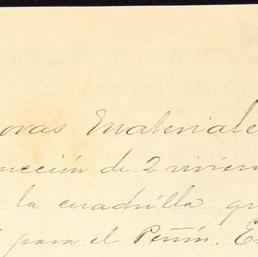 oras Materiale
rucción de 2 vivien
la cuadrilla qu
para el Peñín. E